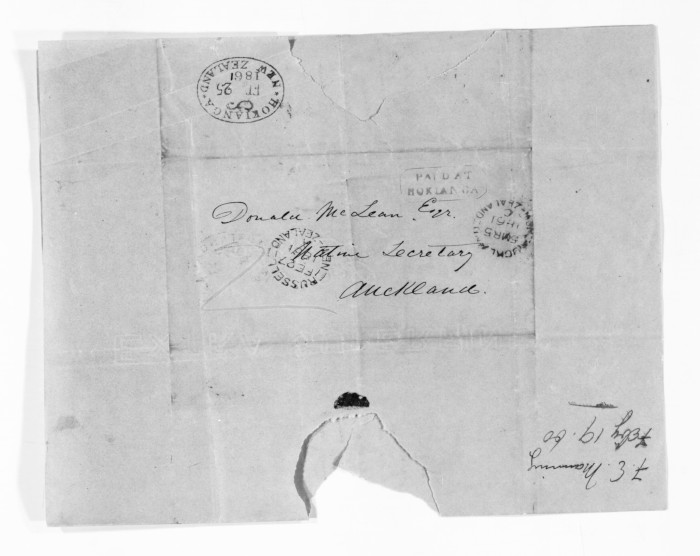 HOKIANGA
FE 25
1861
NEW ZEALAND
PAID AT
HOKIANGA
Donald McLean Esqr.
Native Secretary
Auckland.
RUSSELL
FE 27
NEW ZEALAND
MR 5
1861
NEW ZEALAND
F. E. Manning
Feby 19. 60